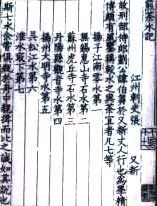 煎茶水記
江州刺史張又新
故刑部侍郎劉公諱伯芻於又新丈人行也為學精
博頗有風鑒稱較水之與茶宜者凡七等
揚子江南零水第一
無錫惠山寺石水第二
蘇州虎丘寺石水第三
丹陽縣觀音寺水第四
揚州大明寺水第五
吳松江水第六
淮水最下第七
斯七水余嘗俱瓶於舟中親挹而比之誠如其說也